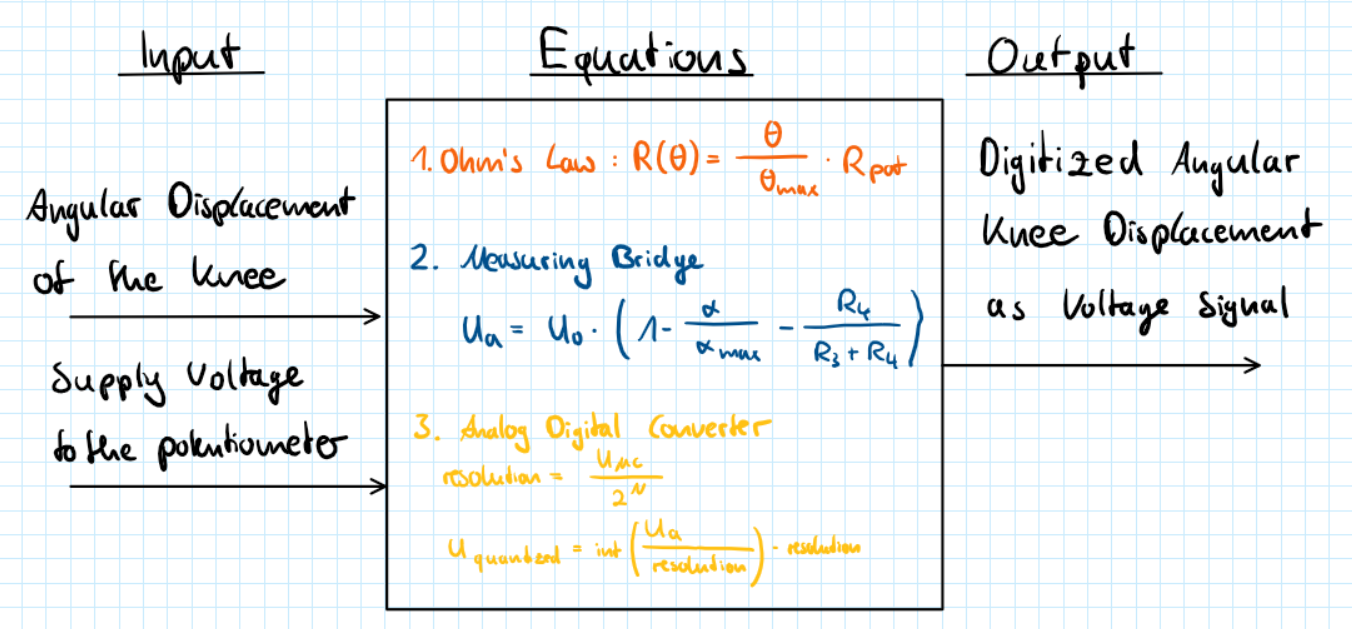 Input
Equations
Output
Angular Displacement
of the knee
Supply Voltage
to the potentiometer
1. Ohm's Law : R(θ) = θ / θmax · Rpot
2. Measuring Bridge
Ua = U0 · (1 - α / αmax - R4 / (R3 + R4))
3. Analog Digital Converter
resolution = UMC / 2^N
Uquantized = int (Ua / resolution) · resolution
Digitized Angular
Knee Displacement
as Voltage Signal